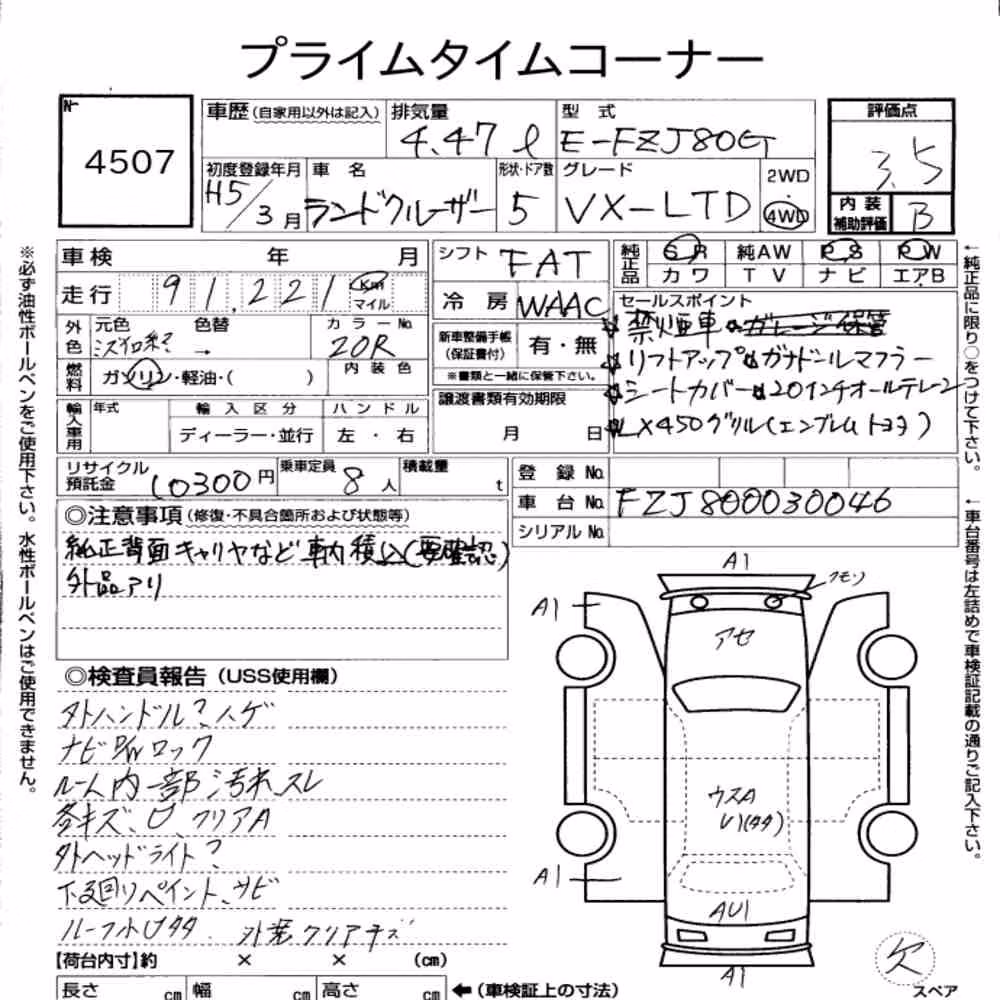 プライムタイムコーナー
No
4507
車歴(自家用以外は記入)
排気量
4.47 ℓ
型式
E-FZJ80G
評価点
3.5
内装
補助評価
B
初度登録年月
H5/3月
車名
ランドクルーザー
形状・ドア数
5
グレード
VX-LTD
2WD
・
4WD
車検 年 月
走行 91,221 Km マイル
外色
元色 色替
カラーNo.
20R
燃料
ガソリン・軽油・( )
内装色
輸入車用
年式
輸入区分
ディーラー・並行
ハンドル
左・右
シフト FAT
冷房 WAAC
新車整備手帳
(保証書付)
有・無
※書類と一緒に保管下さい。
譲渡書類有効期限
月 日
純正品
SR 純AW PS PW
カワ TV ナビ エアB
セールスポイント
☆禁煙車 ☆ガレージ保管
☆リフトアップ ☆ガナドールマフラー
☆シートカバー ☆20インチオールテレーン
☆LX450グリル(エンブレムトヨタ)
リサイクル
預託金
10300円
乗車定員
8人
積載量
t
登録No.
車台No. FZJ800030046
シリアルNo.
◎注意事項(修復・不具合箇所および状態等)
純正背面キャリヤなど車内積込(要確認)
外品アリ
◎検査員報告(USS使用欄)
タトハンドル?、ハゲ
ナビP/Wロック
ルーム内一部汚れ、スレ
各キズ、凹、クリアA
外ヘッドライト?
下廻りペイント、サビ
ルーフ小凹タタ 外装クリアキズ
【荷台内寸】約 × × (cm)
長さ cm 幅 cm 高さ cm
←(車検証上の寸法)
A1
クモリ
A1
アセ
ウスA
U1(タタ)
A1
AU1
A1
欠
スペア
※必ず油性ボールペンをご使用下さい。水性ボールペンはご使用できません。
←純正品に限り○をつけて下さい。
←車台番号は左詰めで車検証記載の通りご記入下さい。